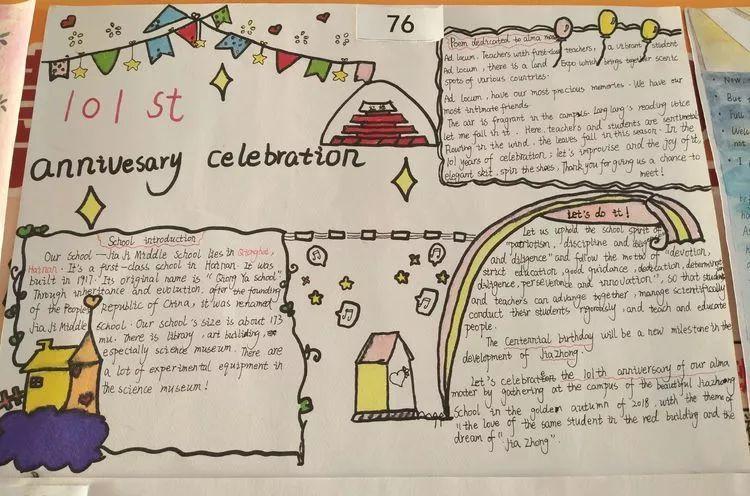 76
101 st
annivesary celebration
Poem dedicated to alma
Ad locum, Teachers with first-class teachers, a vibrant student
Ad locum, there is a land Expo which brings together scenic
spots of various countries.
Ad locum, have our most precious memories. We have our
most intimate friends.
The air is fragrant in the campus. Lang lang's reading voice
let me fall in it. Here, teachers and students are sentimental
flowing in the wind, the leaves fall in this season. In the
101 years of celebration, let's improvise and the joy of it,
elegant skit, spin the shoes, Thank you for giving us a chance to
meet!
School introduction
Our school —Jia Ji Middle School lies in Qionghai,
Hainan. It's a first-class school in Hainan. It was
built in 1917. Its original name is "Qiong Ya School"
Through inheritance and evolution, after the founding
of the People Republic of China, it was renamed
Jia Ji Middle School. Our school's size is about 173
mu. There is library, art building,
especially science museum. There are
a lot of experimental equipment in
the science museum!
Let's do it!
Let us uphold the school spirit of
"patriotism, discipline and
and diligence" and follow the motto of "devotion,
strict education, good guidance, dedication, determination
diligence, perseverence and innovation", so that student
and teachers can advange together, manage scientifically
conduct their students rigorously, and teach and educate
people.
The Centennial birthday will be a new milestone in the
development of Jiazhong.
Let's celebration the 101th anniversary of our alma
mater by gathering at the campus of the beautiful Jiazhong
School in the golden autumn of 2018, with the theme of
"the love of the same student in the red building and the
dream of "Jia Zhong".